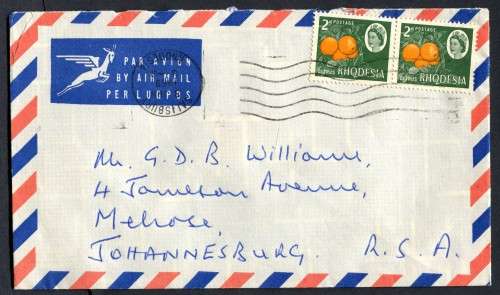 PAR AVION
BY AIR MAIL
PER LUGPOS
2D POSTAGE
Citrus RHODESIA
2D POSTAGE
Citrus RHODESIA
Mr. G. D. B. Williams,
4 Jameson Avenue,
Melrose,
JOHANNESBURG. R. S. A.